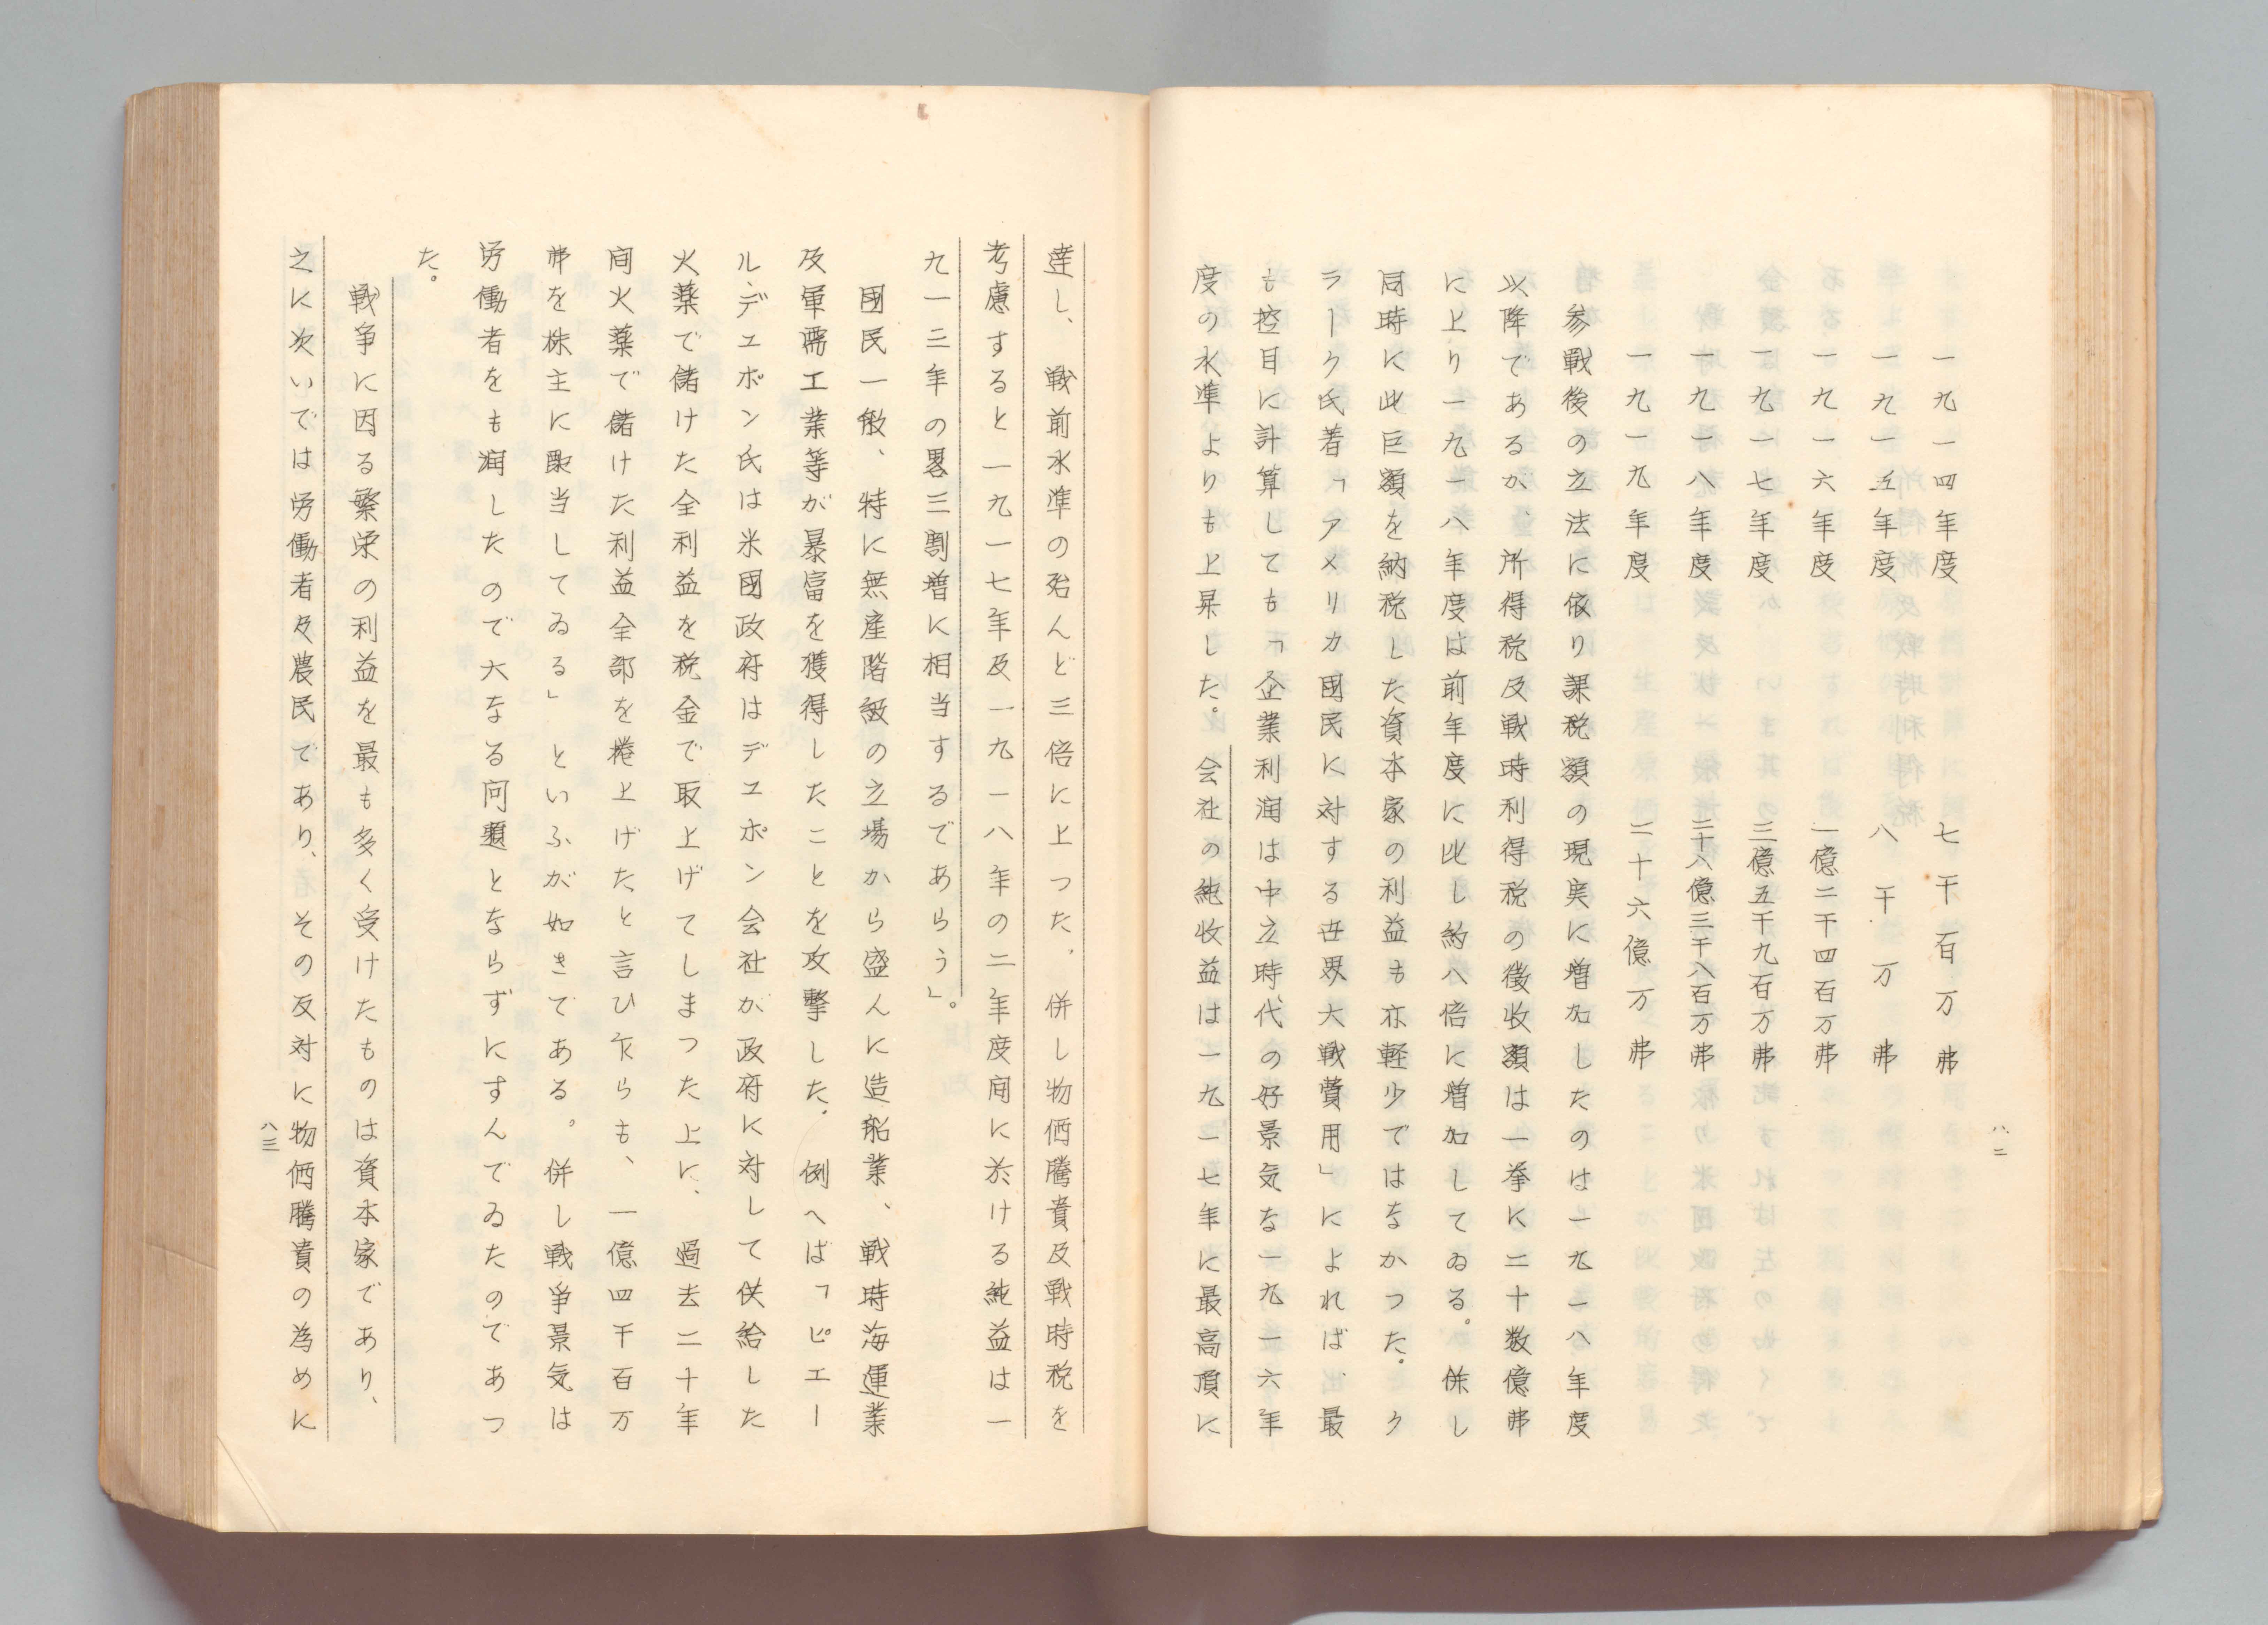 八二
一九一四年度　七千百万弗
一九一五年度　八千万弗
一九一六年度　一億二千四百万弗
一九一七年度　三億五千九百万弗
一九一八年度　二十八億三千八百万弗
一九一九年度　二十六億万弗
参戦後の立法に依り課税額の現実に増加したのは一九一八年度
以降であるが、所得税及戦時利得税の徴收額は一挙に二十数億弗
に上り一九一八年度は前年度に比し約八倍に増加してゐる。併し
同時に此巨額を納税した資本家の利益も亦軽少ではなかつた。ク
ラーク氏著「アメリカ國民に対する世界大戦費用」によれば、最
も控目に計算しても「企業利潤は中立時代の好景気な一九一六年
度の水準よりも上昇した。会社の純收益は一九一七年に最高頂に
達し、戦前水準の殆んど三倍に上つた、併し物価騰貴及戦時税を
考慮すると一九一七年及一九一八年の二年度間に於ける純益は一
九一三年の畧三割増に相当するであらう」。
國民一般、特に無産階級の立場から盛んに造船業、戦時海運業
及軍需工業等が暴富を獲得したことを攻撃した。例へば「ピエー
ル・デュポン氏は米國政府はデュポン会社が政府に対して供給した
火薬で儲けた全利益を税金で取上げてしまつた上に、過去二十年
間火薬で儲けた利益全部を捲上げたと言ひ乍らも、一億四千百万
弗を株主に配当してゐる」といふが如きである。併し戦爭景気は
労働者をも潤したので大なる問題とならずにすんでゐたのであつ
た。
戦争に因る繁栄の利益を最も多く受けたものは資本家であり、
之に次いでは労働者及農民であり、その反対に物価騰貴の為めに
八三